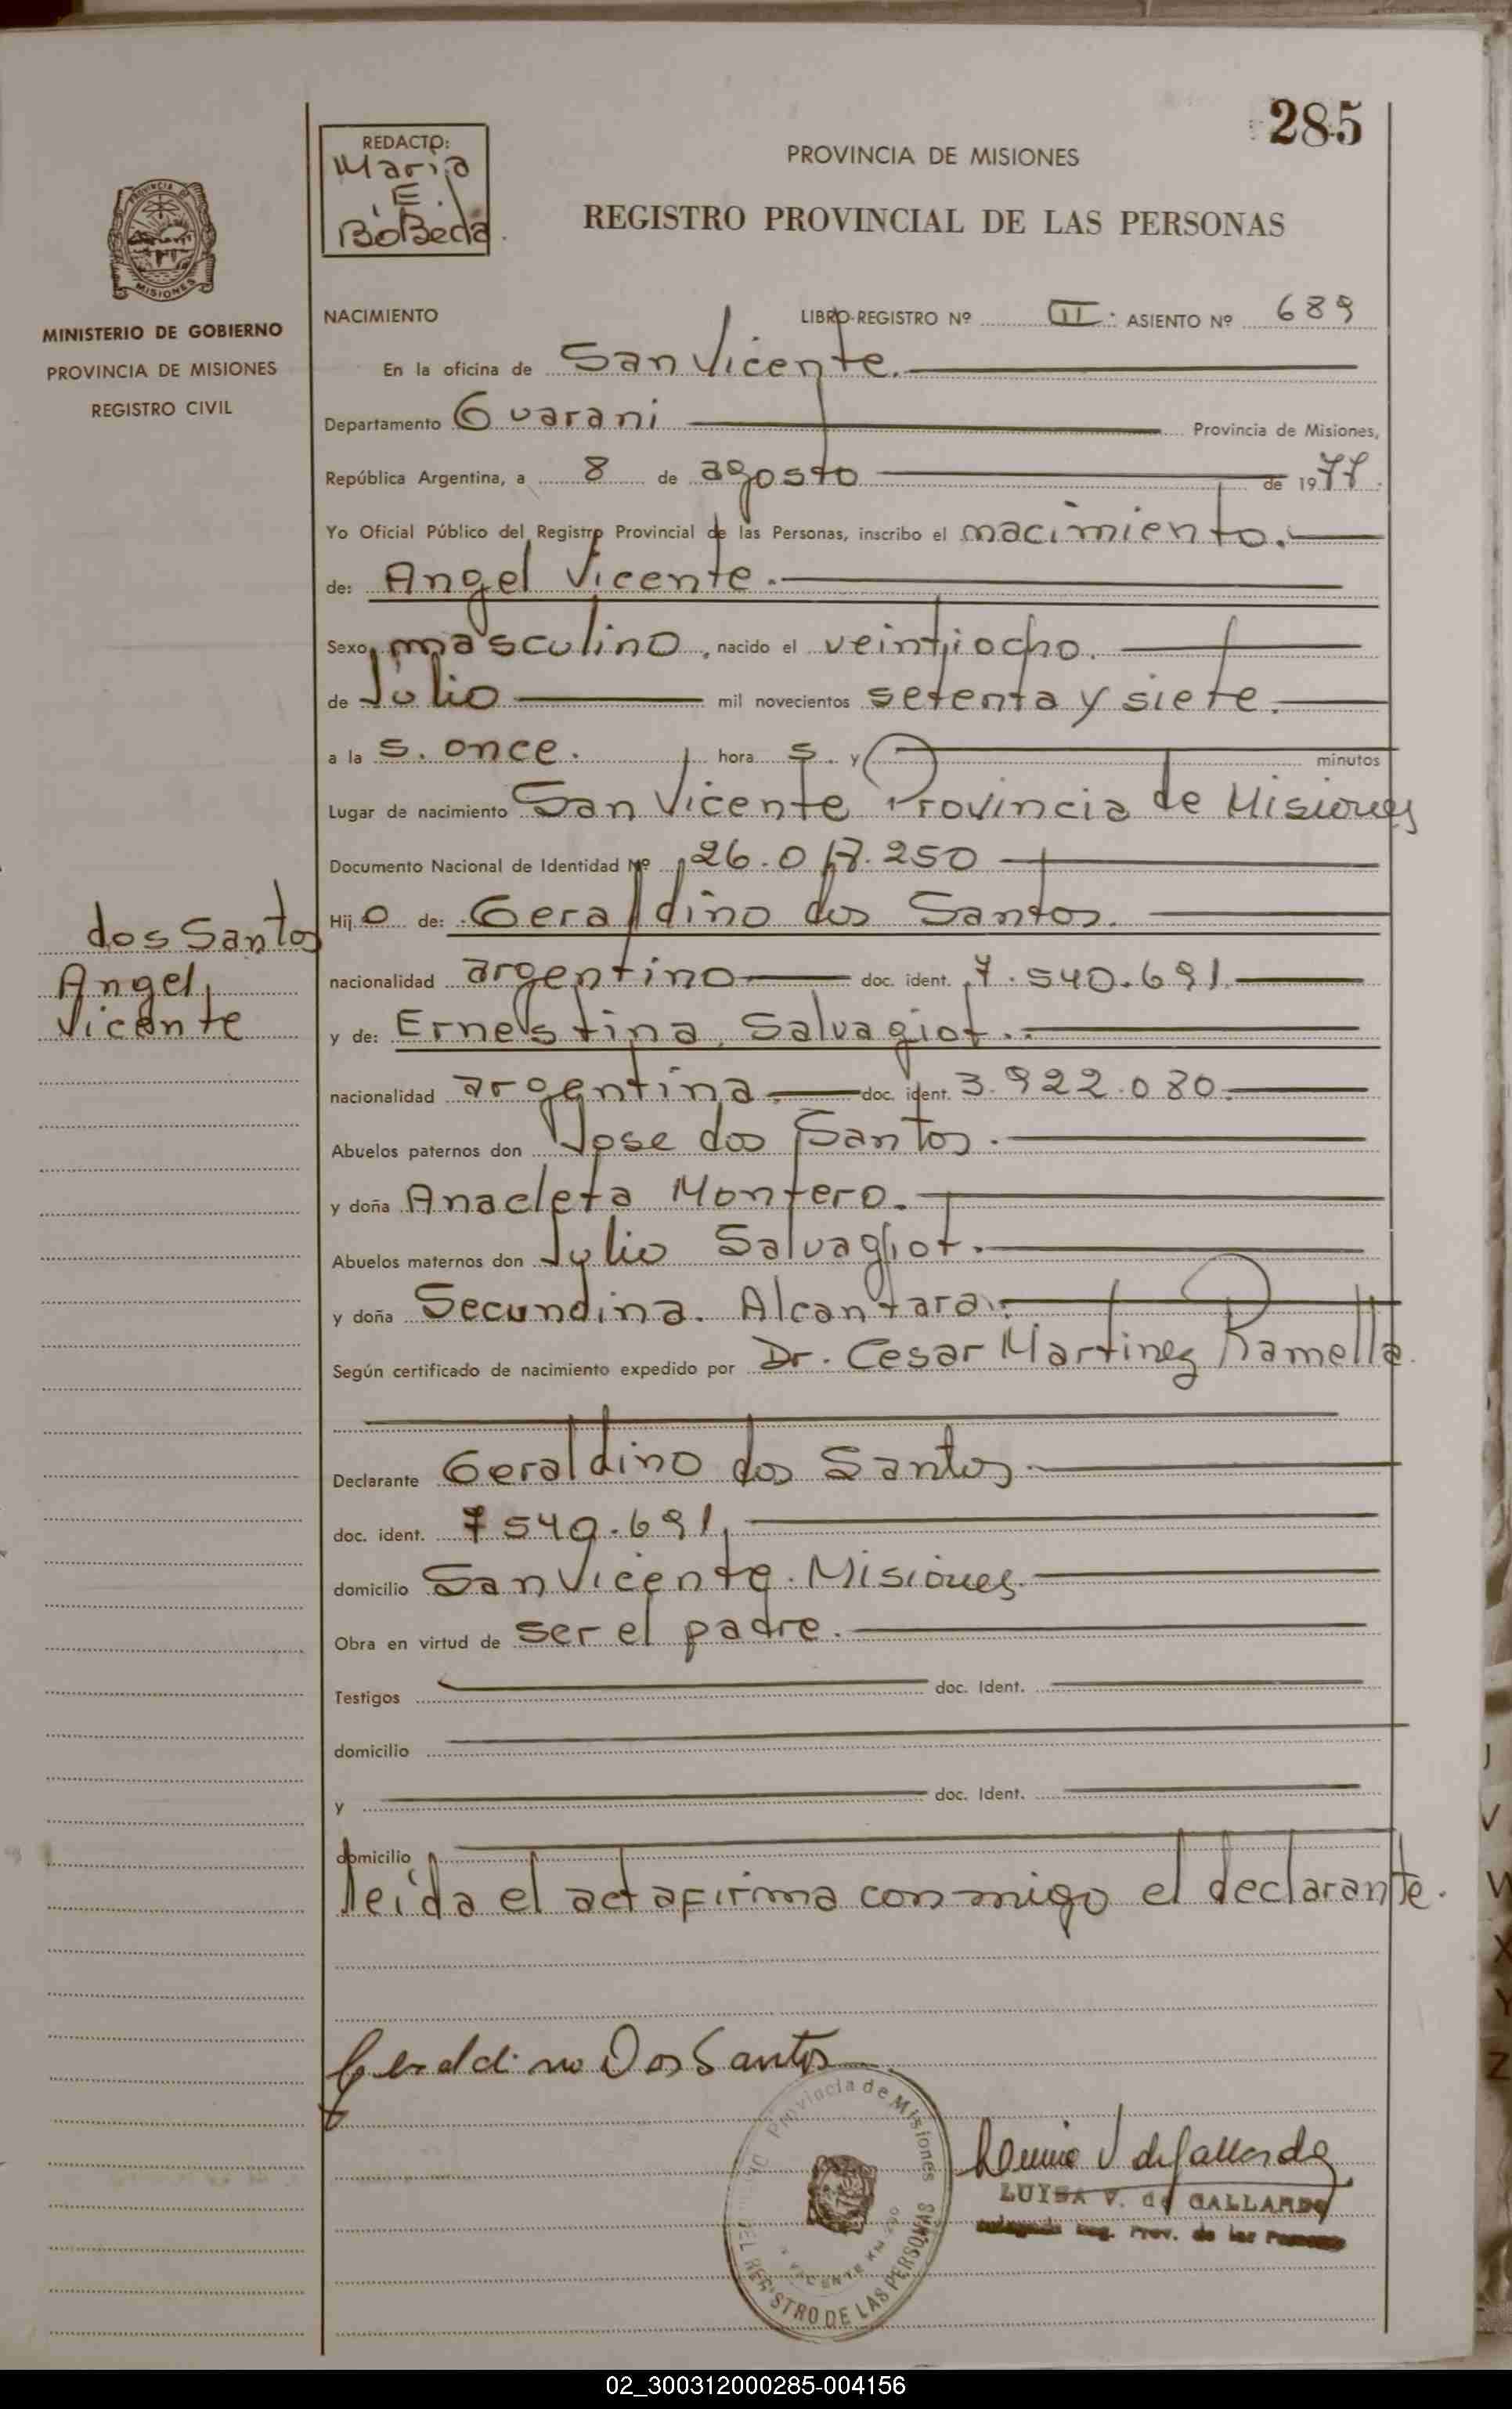 285
REDACTO:
Maria
E.
BoBeda.
PROVINCIA DE MISIONES
REGISTRO PROVINCIAL DE LAS PERSONAS
MISIONES
MINISTERIO DE GOBIERNO
PROVINCIA DE MISIONES
REGISTRO CIVIL
NACIMIENTO LIBRO-REGISTRO Nº III. ASIENTO Nº 689
En la oficina de San Vicente.
Departamento Guarani Provincia de Misiones,
República Argentina, a 8 de agosto de 1977.
Yo Oficial Público del Registro Provincial de las Personas, inscribo el nacimiento.
de: Angel Vicente.
Sexo masculino, nacido el veintiocho.
de Julio mil novecientos setenta y siete.
a la s. once. hora s y minutos
Lugar de nacimiento San Vicente Provincia de Misiones
Documento Nacional de Identidad Nº 26.017.250
Hij o de: Geraldino dos Santos.
dos Santos
Angel
Vicente
nacionalidad argentino doc. ident. 7.540.691.
y de: Ernestina Salvagiot.
nacionalidad argentina doc. ident. 3.922.080.
Abuelos paternos don Jose dos Santos.
y doña Anacleta Montero.
Abuelos maternos don Julio Salvagiot.
y doña Secundina. Alcantara.
Según certificado de nacimiento expedido por Dr. Cesar Martinez Ramella.
Declarante Geraldino dos Santos.
doc. ident. 7 540.691.
domicilio San Vicente. Misiones.
Obra en virtud de ser el padre.
Testigos doc. Ident.
domicilio
y doc. Ident.
domicilio
leída el acta firma conmigo el declarante.
Geraldino Dos Santos
Provincia de Misiones
DEL REGISTRO DE LAS PERSONAS
V. de Gallardo
LUISA V. de GALLARDO
Reg. Prov. de las Personas
02_300312000285-004156